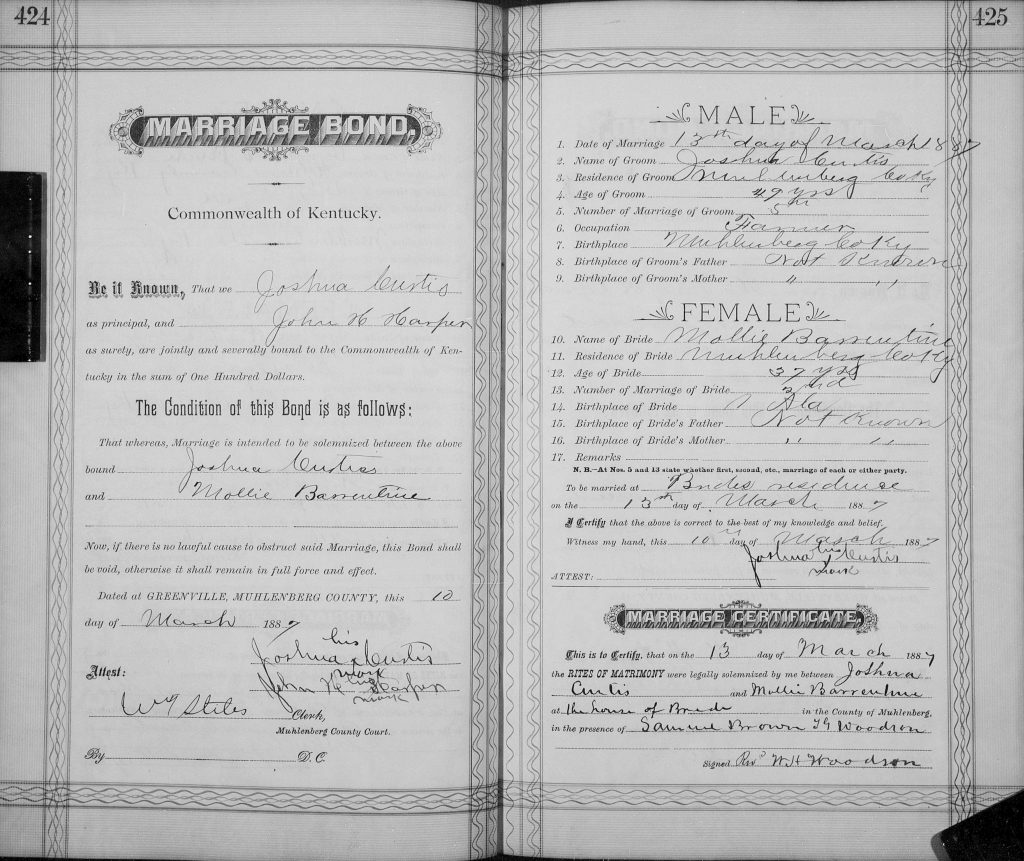 424
MARRIAGE BOND,
Commonwealth of Kentucky.
Be it Known, That we Joshua Curtis
as principal, and John H Harper
as surety, are jointly and severally bound to the Commonwealth of Ken-
tucky in the sum of One Hundred Dollars.
The Condition of this Bond is as follows:
That whereas, Marriage is intended to be solemnized between the above
bound Joshua Curtiss
and Mollie Barrentine
Now, if there is no lawful cause to obstruct said Marriage, this Bond shall
be void, otherwise it shall remain in full force and effect.
Dated at GREENVILLE, MUHLENBERG COUNTY, this 10
day of March 1887
his
Joshua x Curtis
mark
his
John H Harper
mark
Attest:
Wm Stiles Clerk,
Muhlenberg County Court.
By D. C.
425
MALE
1. Date of Marriage 13th day of March 1887
2. Name of Groom Joshua Curtis
3. Residence of Groom Muhlenberg Co Ky
4. Age of Groom 49 yrs
5. Number of Marriage of Groom 5th
6. Occupation Farmer
7. Birthplace Muhlenberg Co Ky
8. Birthplace of Groom's Father Not Known
9. Birthplace of Groom's Mother " "
FEMALE
10. Name of Bride Mollie Barrentine
11. Residence of Bride Muhlenberg Co Ky
12. Age of Bride 37 yrs
13. Number of Marriage of Bride 2nd
14. Birthplace of Bride Ala
15. Birthplace of Bride's Father Not Known
16. Birthplace of Bride's Mother " "
17. Remarks
N. B.—At Nos. 5 and 13 state whether first, second, etc., marriage of each or either party.
To be married at Brides residence
on the 13th day of March 1887
I Certify that the above is correct to the best of my knowledge and belief.
Witness my hand, this 10 day of March 1887
his
Joshua x Curtis
mark
ATTEST:
MARRIAGE CERTIFICATE.
This is to Certify, that on the 13 day of March 1887
the RITES OF MATRIMONY were legally solemnized by me between Joshua
Curtis and Mollie Barrentine
at the house of Bride in the County of Muhlenberg,
in the presence of Samuel Brown T G Woodson
Signed Rev W H Woodson